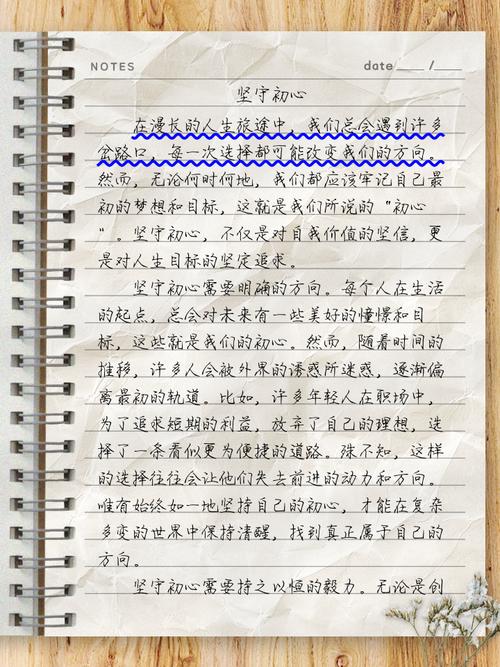 NOTES date ____ /____
坚守初心
在漫长的人生旅途中，我们总会遇到许多
岔路口，每一次选择都可能改变我们的方向。
然而，无论何时何地，我们都应该牢记自己最
初的梦想和目标，这就是我们所说的“初心
”。坚守初心，不仅是对自我价值的坚信，更
是对人生目标的坚定追求。
坚守初心需要明确的方向。每个人在生活
的起点，总会对未来有一些美好的憧憬和目
标，这些就是我们的初心。然而，随着时间的
推移，许多人会被外界的诱惑所迷惑，逐渐偏
离最初的轨道。比如，许多年轻人在职场中，
为了追求短期的利益，放弃了自己的理想，选
择了一条看似更为便捷的道路。殊不知，这样
的选择往往会让他们失去前进的动力和方向。
唯有始终如一地坚持自己的初心，才能在复杂
多变的世界中保持清醒，找到真正属于自己的
方向。
坚守初心需要持之以恒的毅力。无论是创